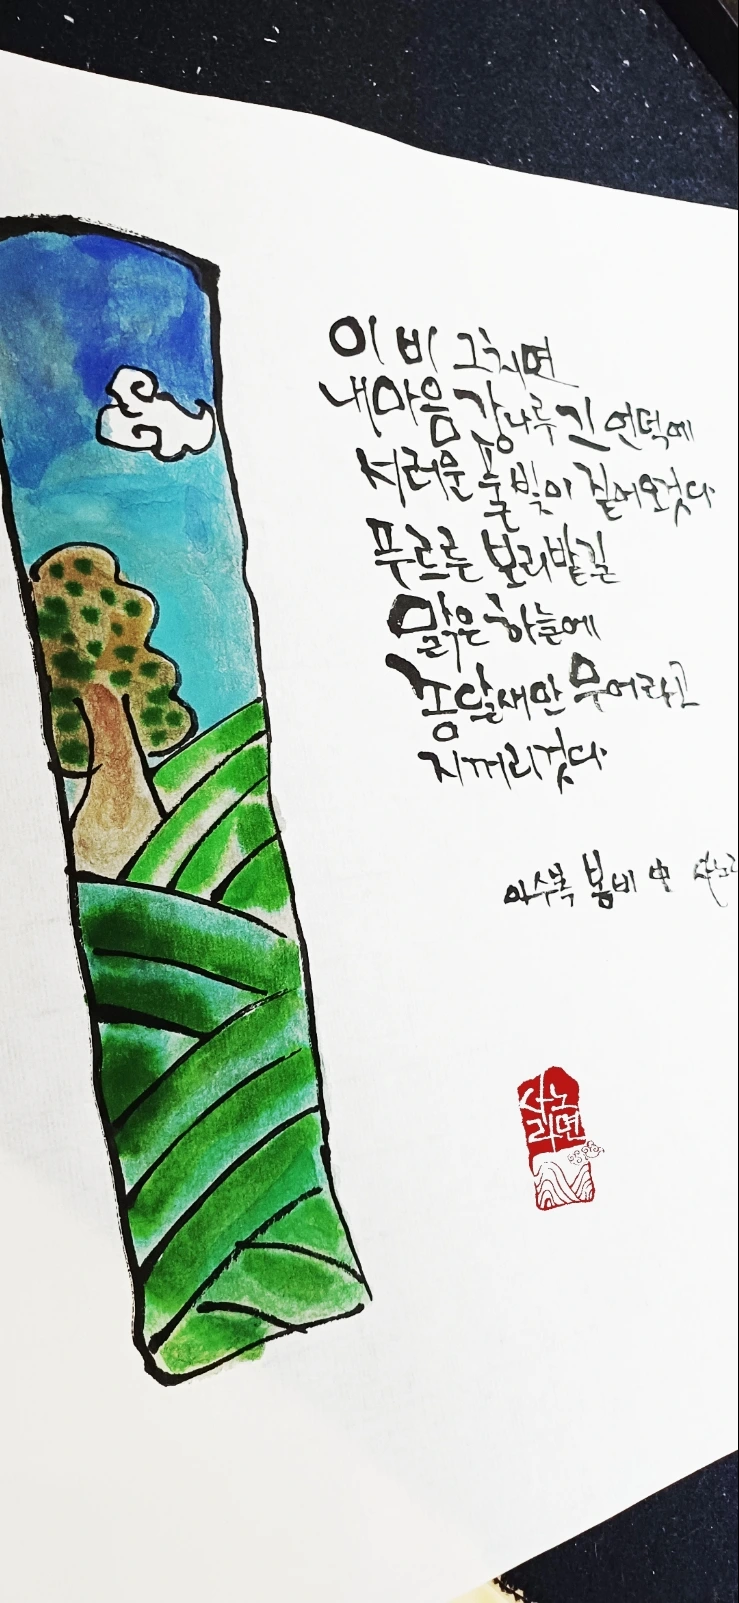 이 비 그치면
내마음 강나루 긴 언덕에
서러운 풀빛이 짙어오것다
푸르른 보리밭길
맑은 하늘에
종달새만 무어라고
지껄이것다
이수복 봄비 中
사노
라면